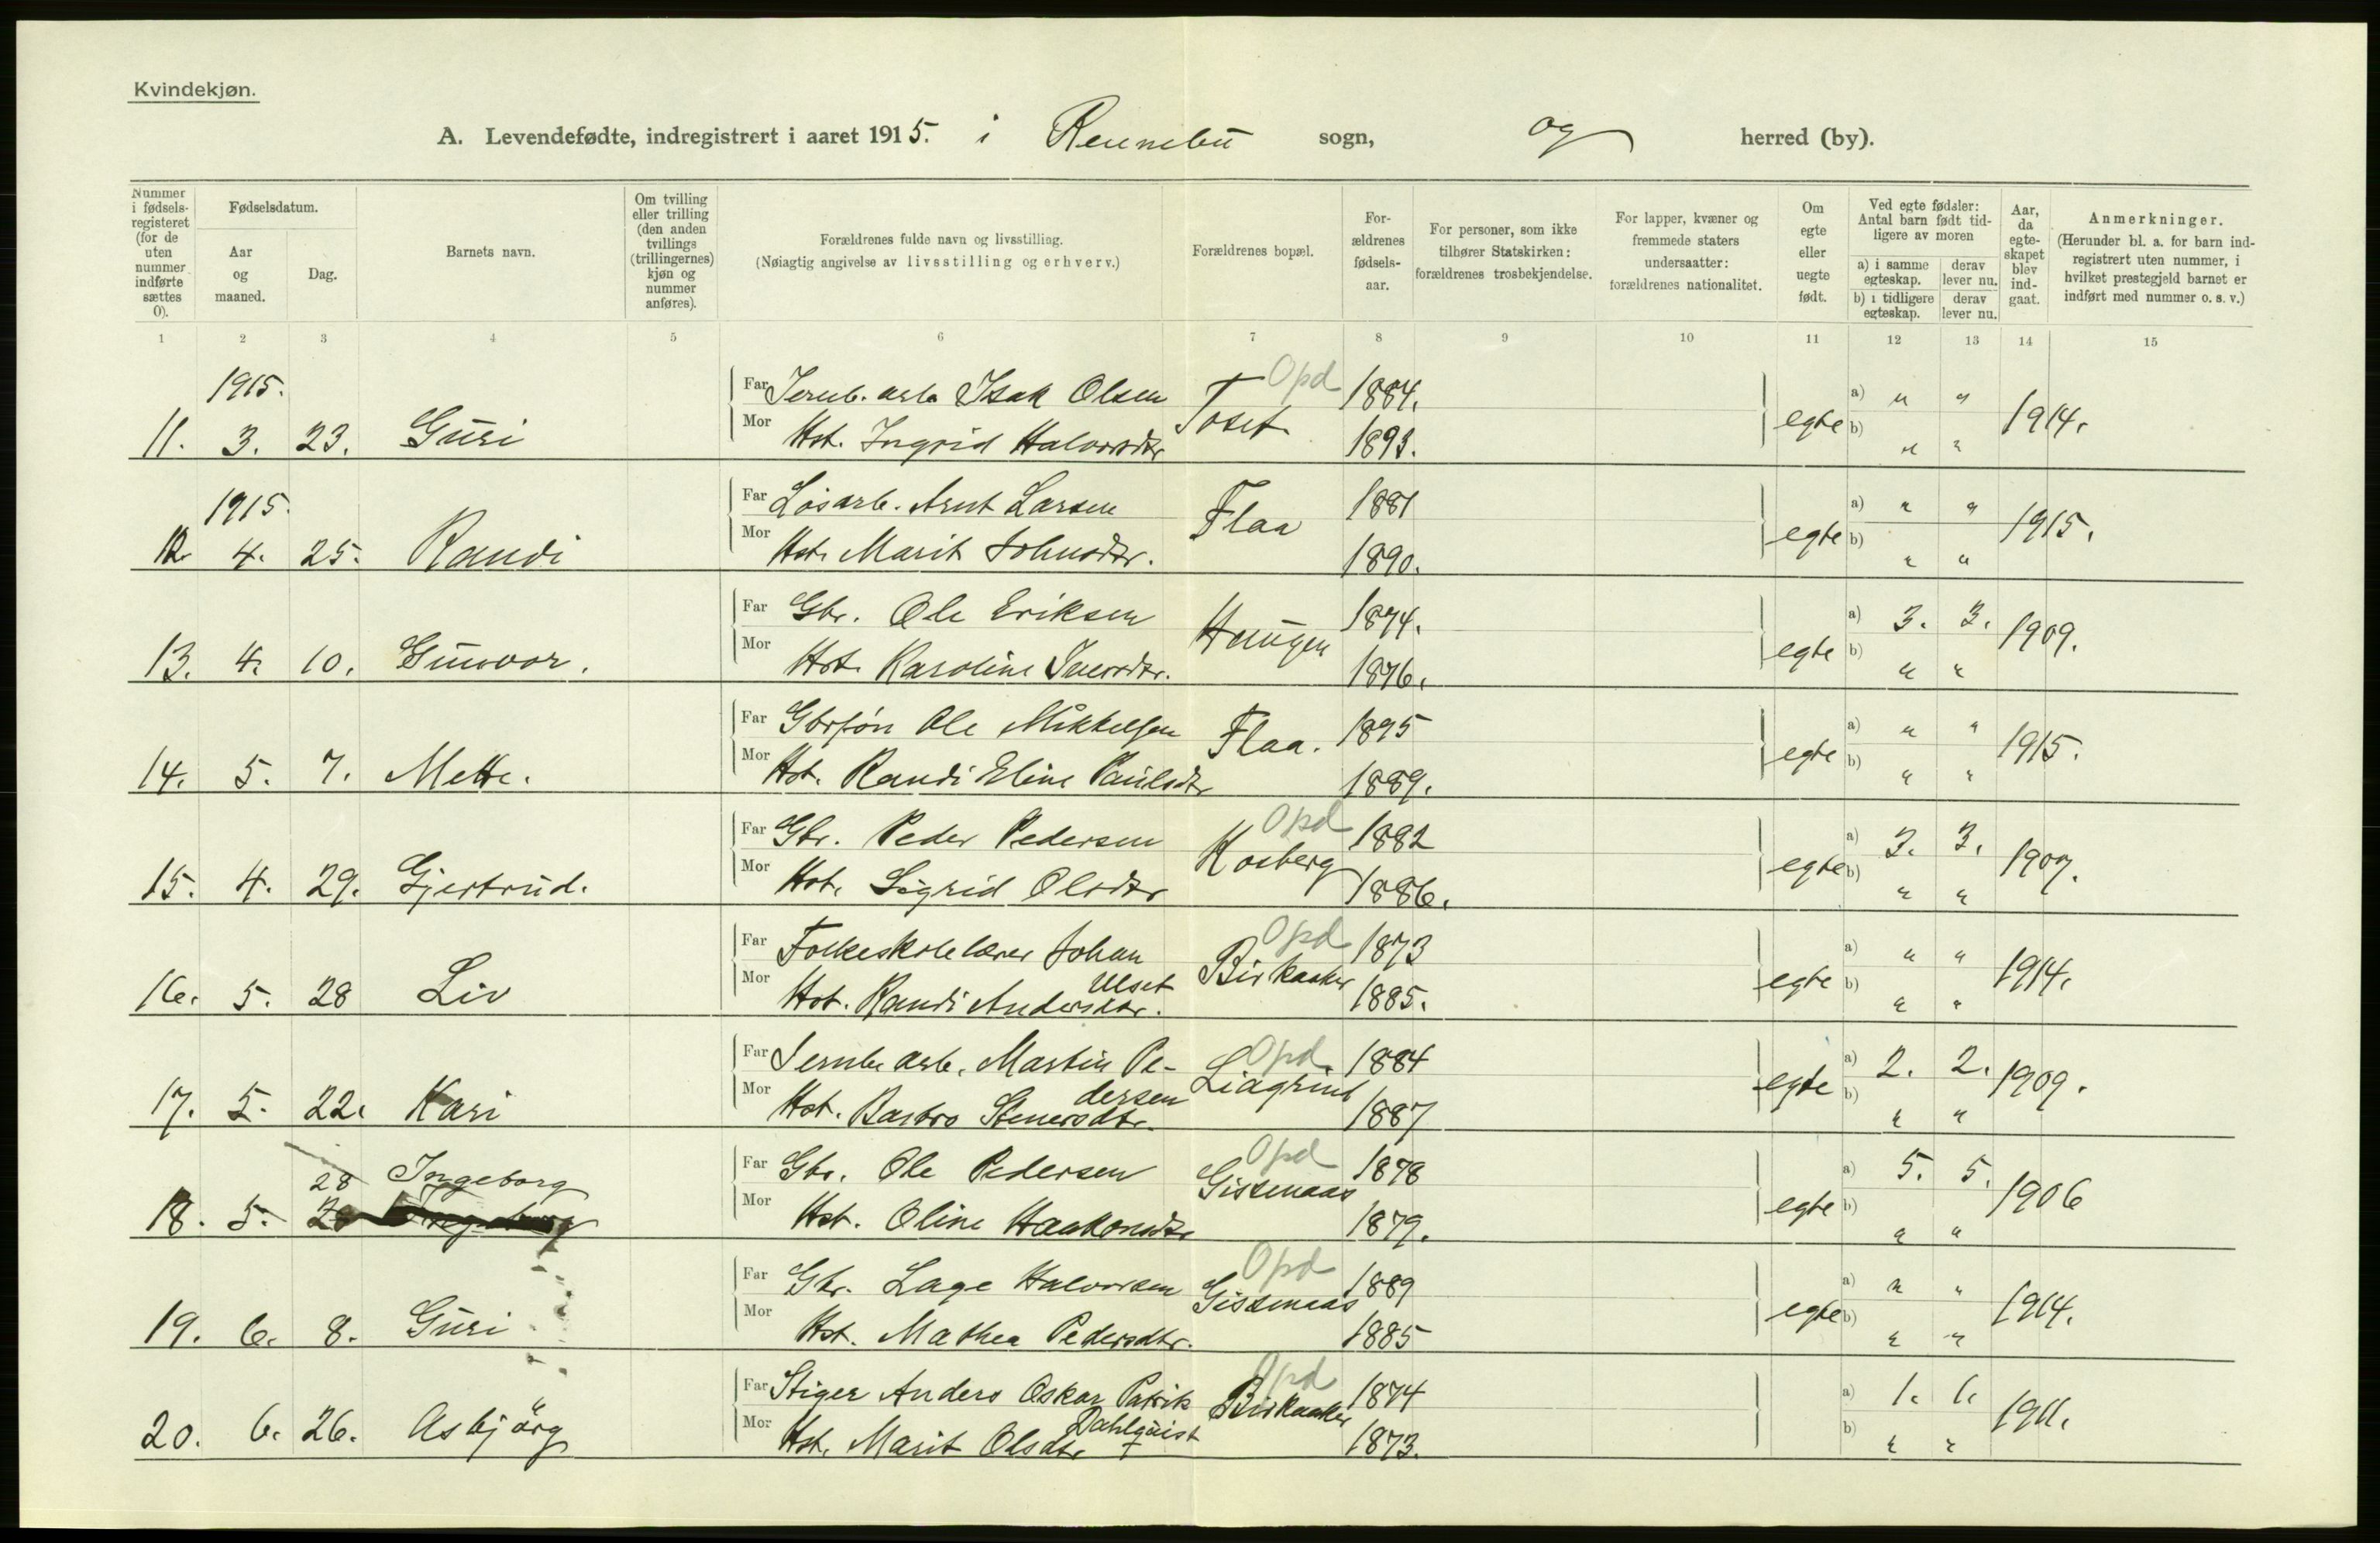 Kvindekjøn.
A. Levendefødte, indregistrert i aaret 1915. i Rennebu sogn, og herred (by).
Nummer i fødselsregisteret (for de uten nummer indførte sættes 0).
Fødselsdatum.
Aar og maaned.
Dag.
Barnets navn.
Om tvilling eller trilling (den anden tvillings (trillingernes) kjøn og nummer anføres).
Forældrenes fulde navn og livsstilling.
(Nøiagtig angivelse av livsstilling og erhverv.)
Forældrenes bopæl.
Forældrenes fødselsaar.
For personer, som ikke tilhører Statskirken: forældrenes trosbekjendelse.
For lapper, kvæner og fremmede staters undersaatter: forældrenes nationalitet.
Om egte eller uegte født.
Ved egte fødsler: Antal barn født tidligere av moren
a) i samme egteskap. derav lever nu.
b) i tidligere egteskap. derav lever nu.
Aar, da egteskapet blev indgaat.
Anmerkninger.
(Herunder bl. a. for barn indregistrert uten nummer, i hvilket prestegjeld barnet er indført med nummer o. s. v.)
1 2 3 4 5 6 7 8 9 10 11 12 13 14 15
1915. Far Jernb. arb. Isak Olsen Opd 1884. a) " "
11. 3. 23. Guri Mor Hst. Ingrid Halvorsdtr Toset 1893. egte b) " " 1914.
1915. Far Løsarb. Arnt Larsen Flaa 1881 a) " "
12. 4. 25. Randi Mor Hst. Marit Johnsdtr. 1890. egte b) " " 1915.
Far Gbr. Ole Eriksen Haugen 1874. a) 3. 3.
13. 4. 10. Gunvor. Mor Hst. Karoline Iversdtr. 1876. egte b) " " 1909.
Far Gbrsøn Ole Mikkelsen Flaa. 1895 a) " "
14. 5. 7. Mette. Mor Hst. Randi Eline Paulsdtr 1889. egte b) " " 1915.
Far Gbr. Peder Pedersen Opd 1882 a) 3. 3.
15. 4. 29. Gjertrud. Mor Hst. Sigrid Olsdtr Hosberg 1886. egte b) " " 1907.
Far Folkeskolelærer Johan Ulset Opd 1873 a) " "
16. 5. 28 Liv Mor Hst. Randi Andersdtr. Birkaaker 1885. egte b) " " 1914.
Far Jernb. arb. Martin Pedersen Opd. 1884 a) 2. 2.
17. 5. 22. Kari Mor Hst. Barbro Stenersdtr. Liagrind 1887 egte b) " " 1909.
28 Ingeborg Far Gbr. Ole Pedersen Opd 1878 a) 5. 5.
18. 5. Mor Hst. Oline Haakonsdtr Gissenaas 1879. egte b) " " 1906
Far Gbr. Lage Halvorsen Opd 1889 a) " "
19. 6. 8. Guri Mor Hst. Mathea Pedersdtr. Gissenaas 1885 egte b) " " 1914.
Far Stiger Anders Oskar Patrik Dahlquist Opd 1874 a) 1. 1.
20. 6. 26. Asbjörg Mor Hst. Marit Olsdtr. Birkaaker 1873. b) " " 1911.